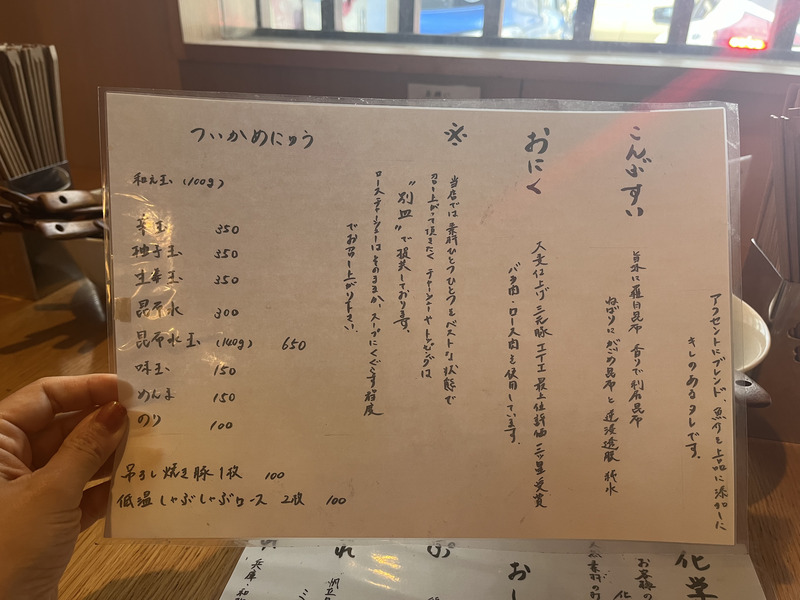 アクセントにブレンド、魚介を上品に添加した
キレのあるタレです。
こんぶすい
旨味に羅臼昆布 香りで利尻昆布
ねばりにがごめ昆布と逆浸透膜純水
おにく
三元豚 エイエ 最上位評価 三ッ星受賞
バラ肉・ロース肉を使用しています。
※
当店では素材ひとつひとつをベストな状態で
召し上がって頂きたく チャーシューやトッピングは
"別皿"で提供しております。
ロースチャーシューはそのままか、スープにくぐらす程度
でお召し上がり下さい。
ついかめにゅう
和え玉 (100g)
辛玉 350
柚子玉 350
生姜玉 350
昆布水 300
昆布水玉 (140g) 650
味玉 150
めんま 150
のり 100
吊るし焼き豚1枚 100
低温しゃぶしゃぶロース 2枚 100
化学
お客様の
おし
れ
兵庫・和